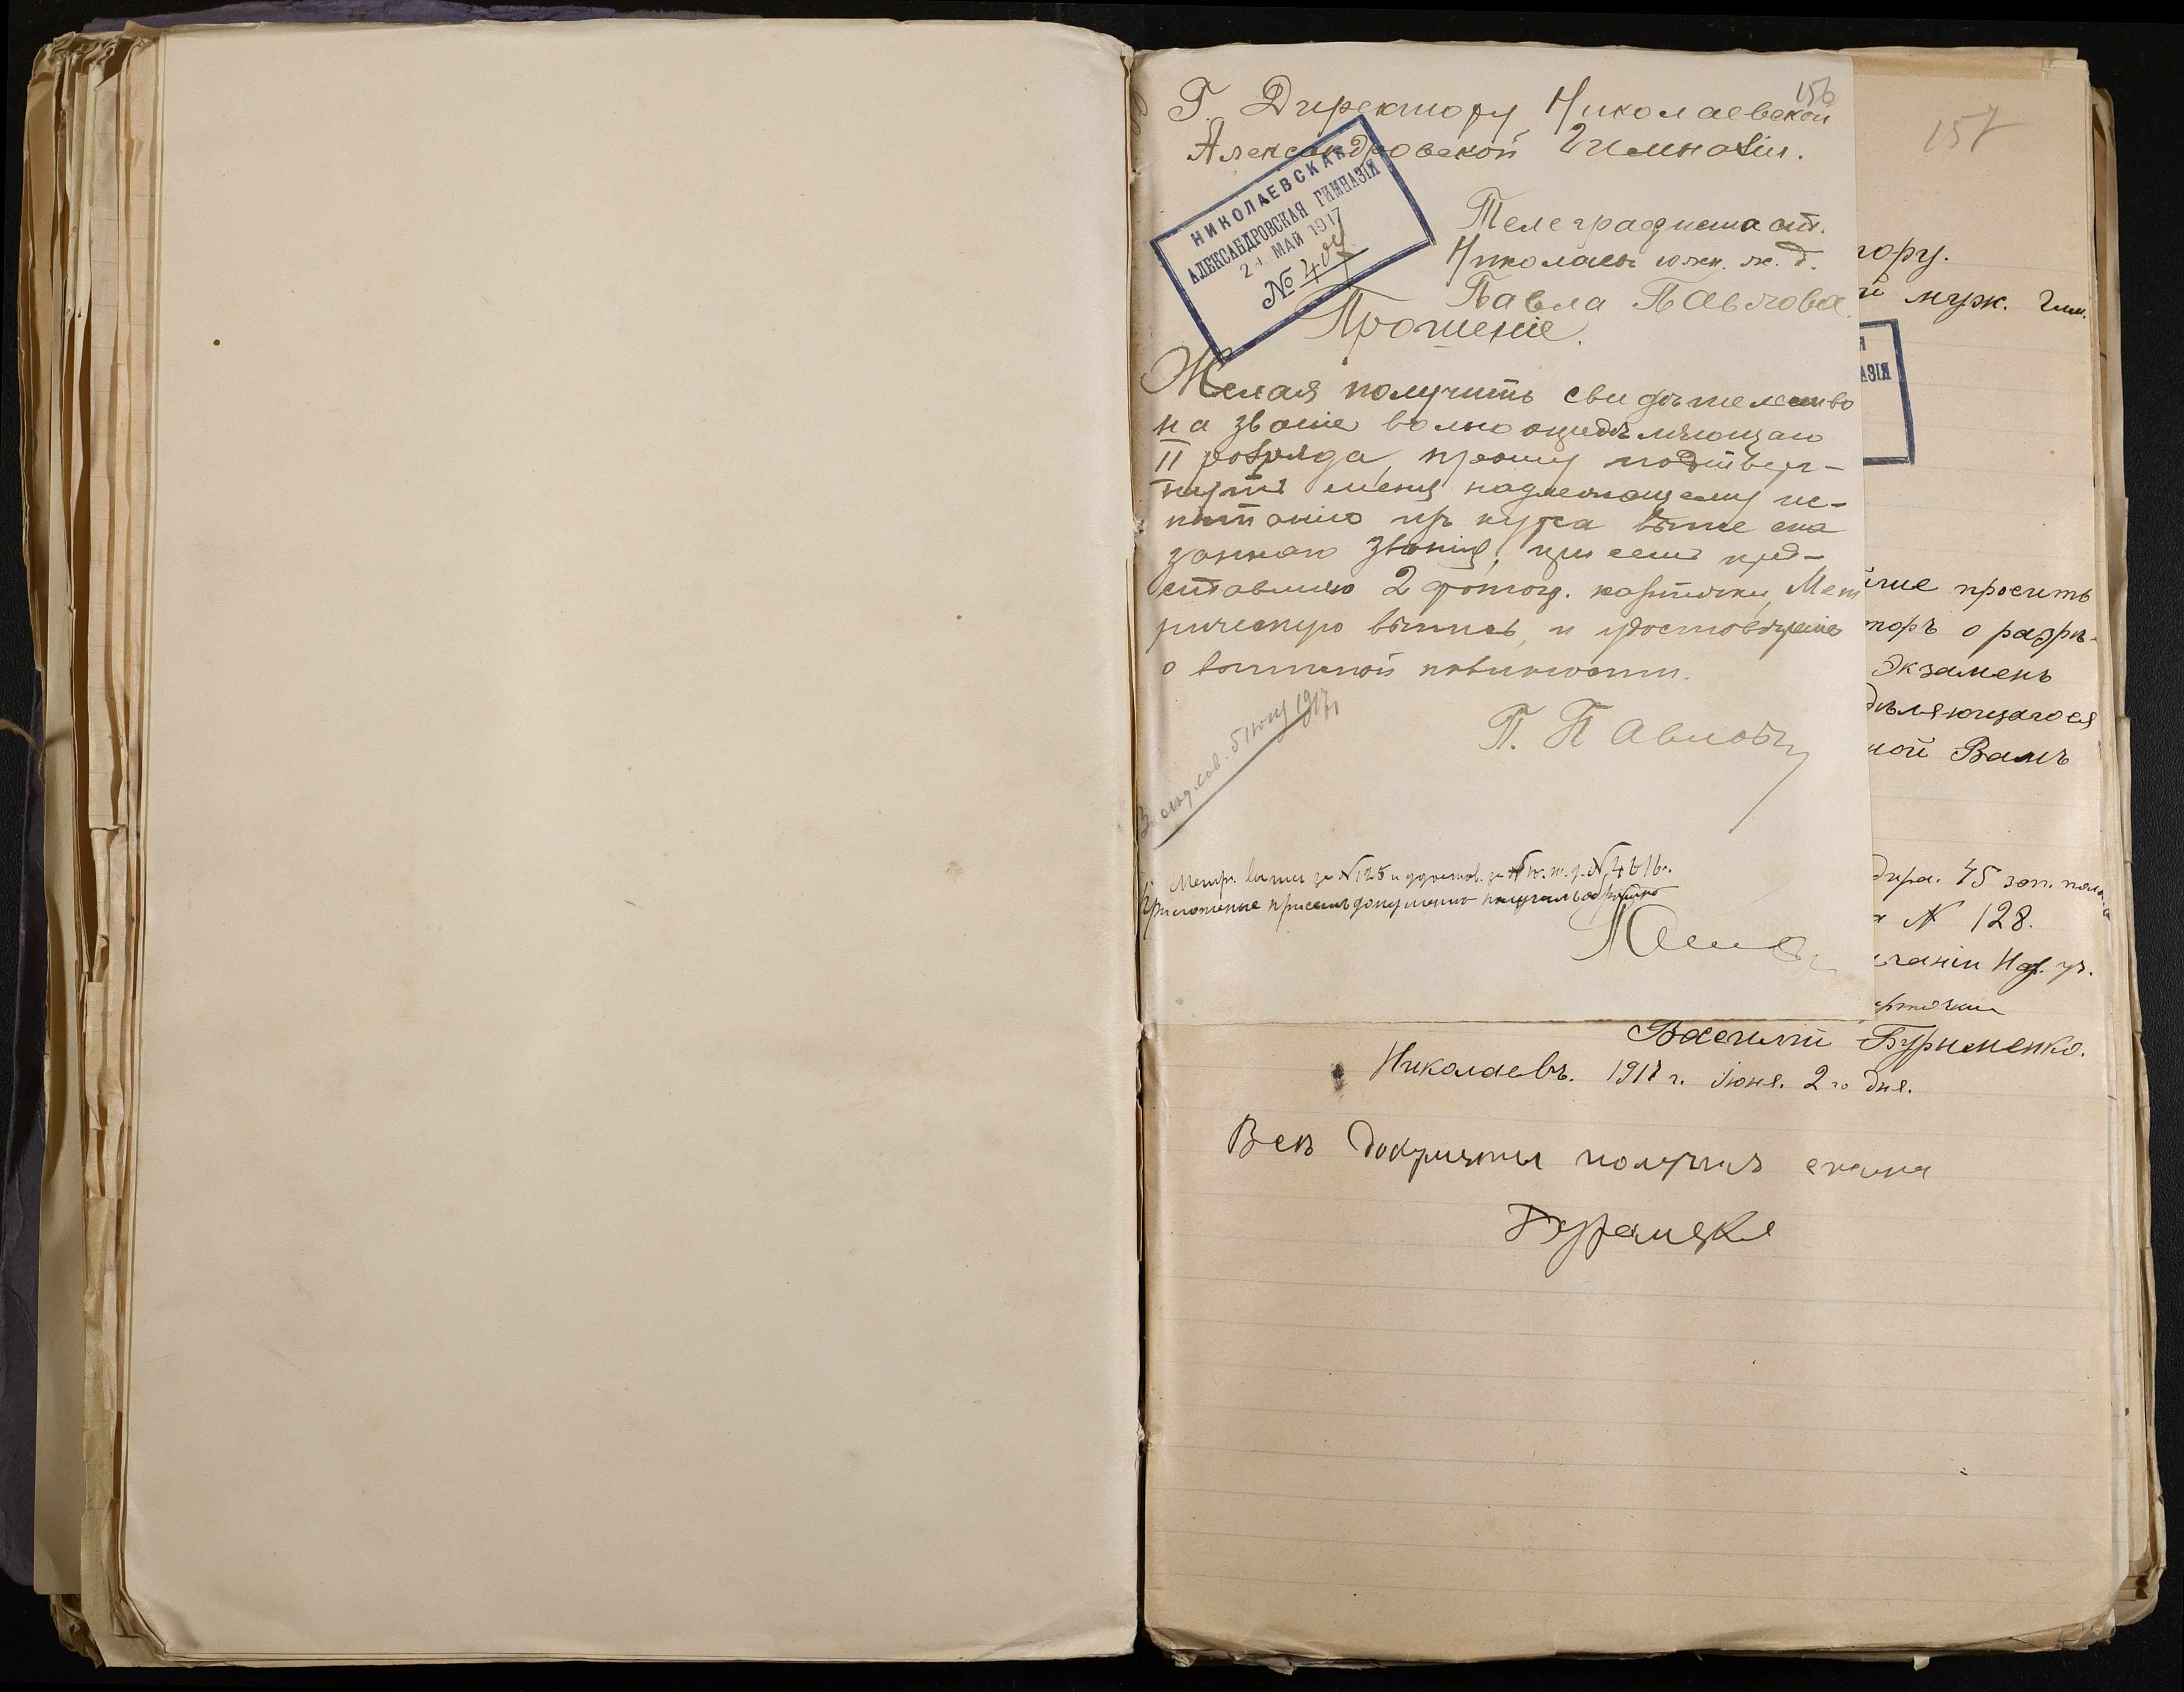 156
Г. Директору Николаевской
Александровской Гимназіи.
НИКОЛАЕВСКАЯ
АЛЕКСАНДРОВСКАЯ ГИМНАЗІЯ
МАЙ 1917
№ 407
Телеграфиста ст.
Николаевъ южн. ж. д.
Павла Павлова.
Прошеніе.
Желая получить свидѣтельство
на званіе вольноопредѣляющаго
II розряда, прошу подтверг-
нуть меня надлежащему ис-
пытанію изъ курса выше ска
заннаго званія, при семъ пред-
ставляю 2 фотогр. карточки, Мет
рическую выпись, и удостовѣреніе
о воинской повинности.
П. Павловъ
5 іюня 1917 г.
Метр. выпись за №125 и удостов. за №
Приложенные при семъ документы получилъ обратно
157
тору.
й муж. Гим.
АЗІЯ
просить
о разрѣ-
Экзаменъ
дѣляющагося
ной Вамъ
45 зап. полка
№ 128.
Нар. уч.
Василій Бурименко.
Николаевъ. 1917 г. Іюня. 2го дня.
Всѣ документы получилъ сполна